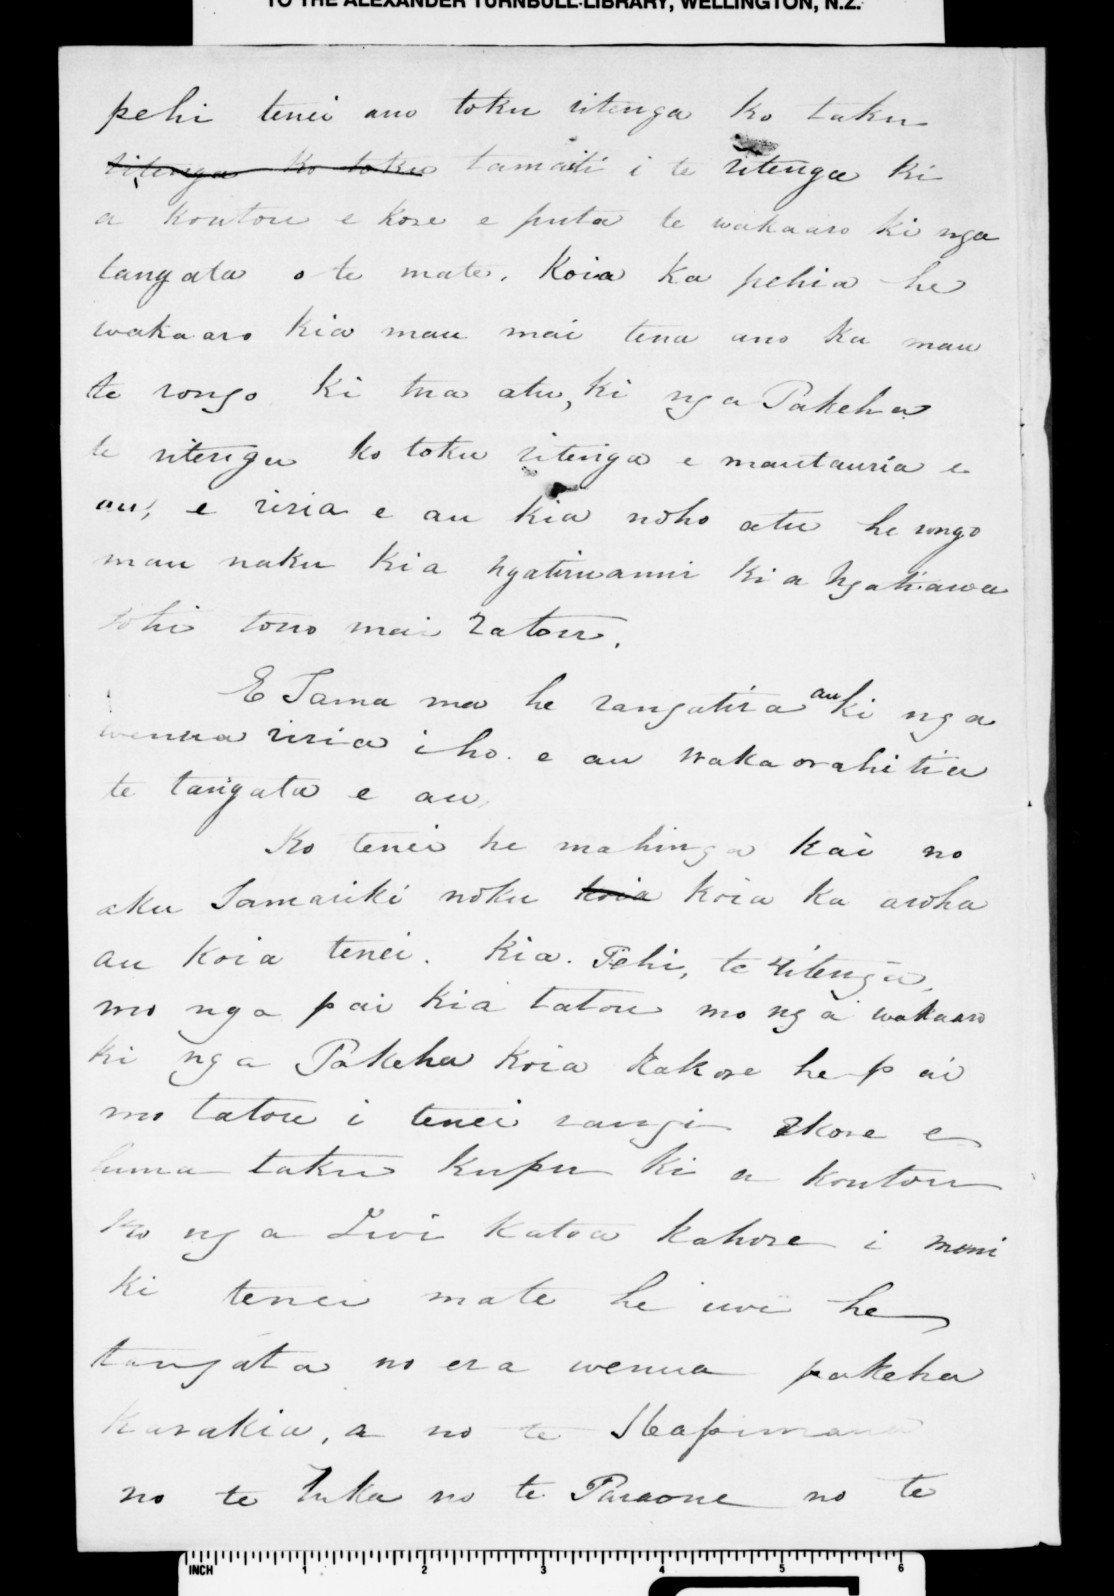 TO THE ALEXANDER TURNBULL LIBRARY, WELLINGTON, N.Z.
pehi tenei ano toku ritenga ko taku
ritenga ko toku tamaiti i te ritenga ki
a koutou e kore e puta te wakaaro ki nga
tangata o te mate. Koia ka pehia he
wakaaro kia mau mai tena ano ka mau
te rongo ki tua atu, ki nga Pakeha
te ritenga ko toku ritenga e mautauria e
au, e riria e au kia noho atu he rongo
mau naku kia Ngatiruanui ki a Ngatiawa
tohi tono mai ratou.
E Tama ma he rangatira au ki nga
wenua riria iho e au wakaorahitia
te tangata e au,
Ko tenei he mahinga kai no
aku Tamariki noku koia koia ka aroha
au koia tenei. Kia. Pehi, te ritenga,
mo nga pai kia tatou mo nga wakaaro
ki nga Pakeha koia kakore he pai
mo tatou i tenei rangi ekore e
huna taku kupu ki a koutou
Ko nga Iwi katoa kahore i moni
ki tenei mate he iwi he
tangata no era wenua pakeha
karakia, a no te Hapimana
no te Luka no te Paraone no te
INCH 1 2 3 4 5 6